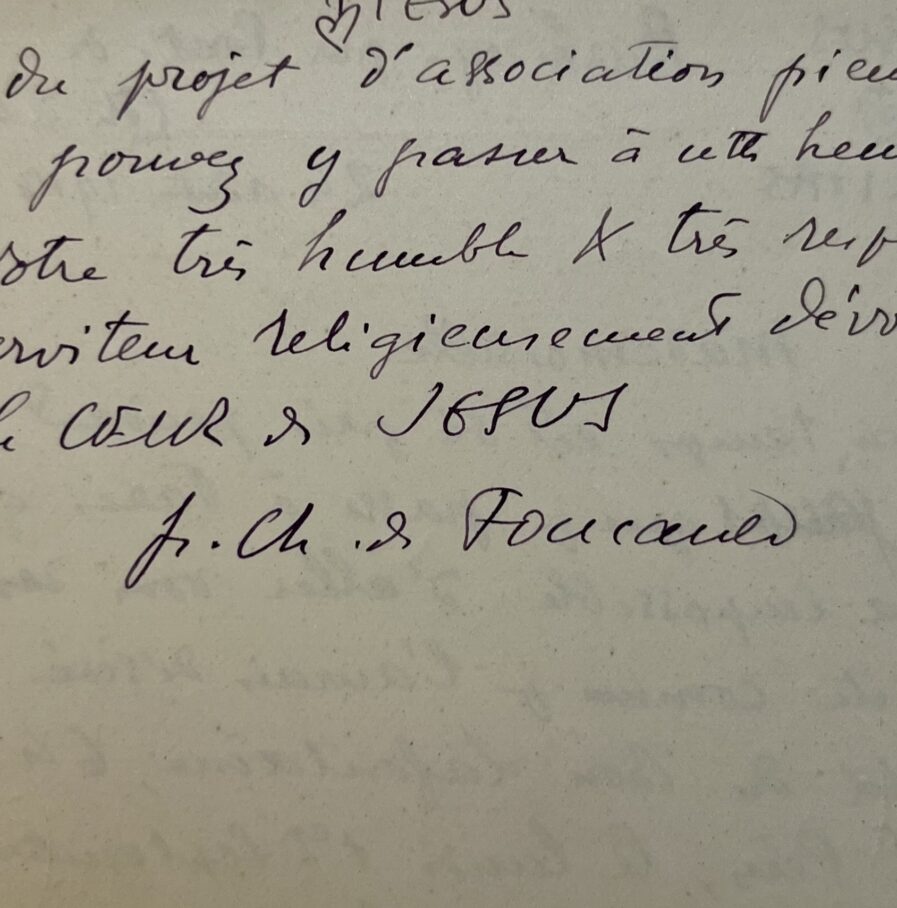 JESUS
du projet d'association pieu
pouvez y passer à cette heu
otre très humble & très resp
erviteur religieusement dévo
le CŒUR de JESUS
fr. Ch. de Foucauld